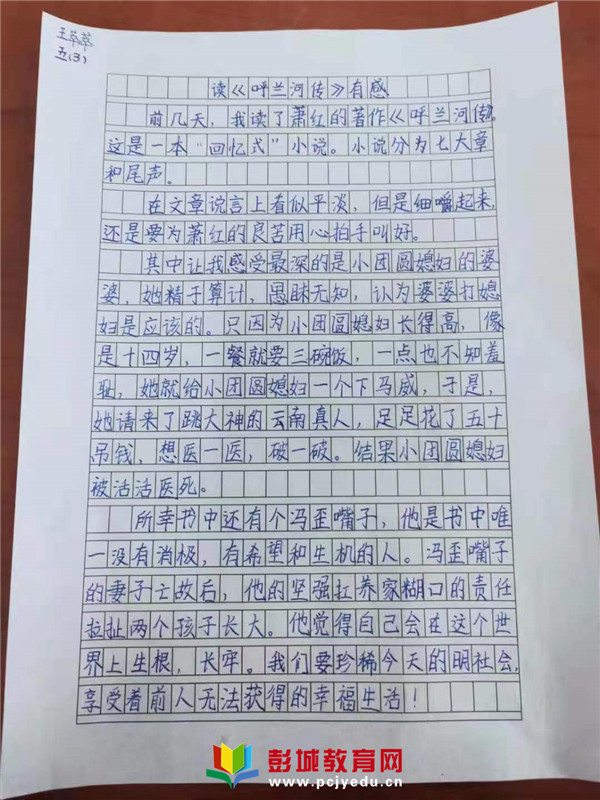 王萃萃
五(3)
读《呼兰河传》有感
前几天，我读了萧红的著作《呼兰河传》。
这是一本“回忆式”小说。小说分为七大章
和尾声。
在文章说言上看似平淡，但是细嚼起来，
还是要为萧红的良苦用心拍手叫好。
其中让我感受最深的是小团圆媳妇的婆
婆，她精于算计，愚昧无知，认为婆婆打媳
妇是应该的。只因为小团圆媳妇长得高，像
是十四岁，一餐就要三碗饭，一点也不知羞
耻，她就给小团圆媳妇一个下马威，于是，
她请来了跳大神的云南真人，足足花了五十
吊钱，想医一医，破一破。结果小团圆媳妇
被活活医死。
所幸书中还有个冯歪嘴子，他是书中唯
一没有消极，有希望和生机的人。冯歪嘴子
的妻子亡故后，他的坚强扛养家糊口的责任
拉扯两个孩子长大。他觉得自己会在这个世
界上生根，长牢。我们要珍稀今天的明社会，
享受着前人无法获得的幸福生活！
彭城教育网
www.pcjyedu.cn